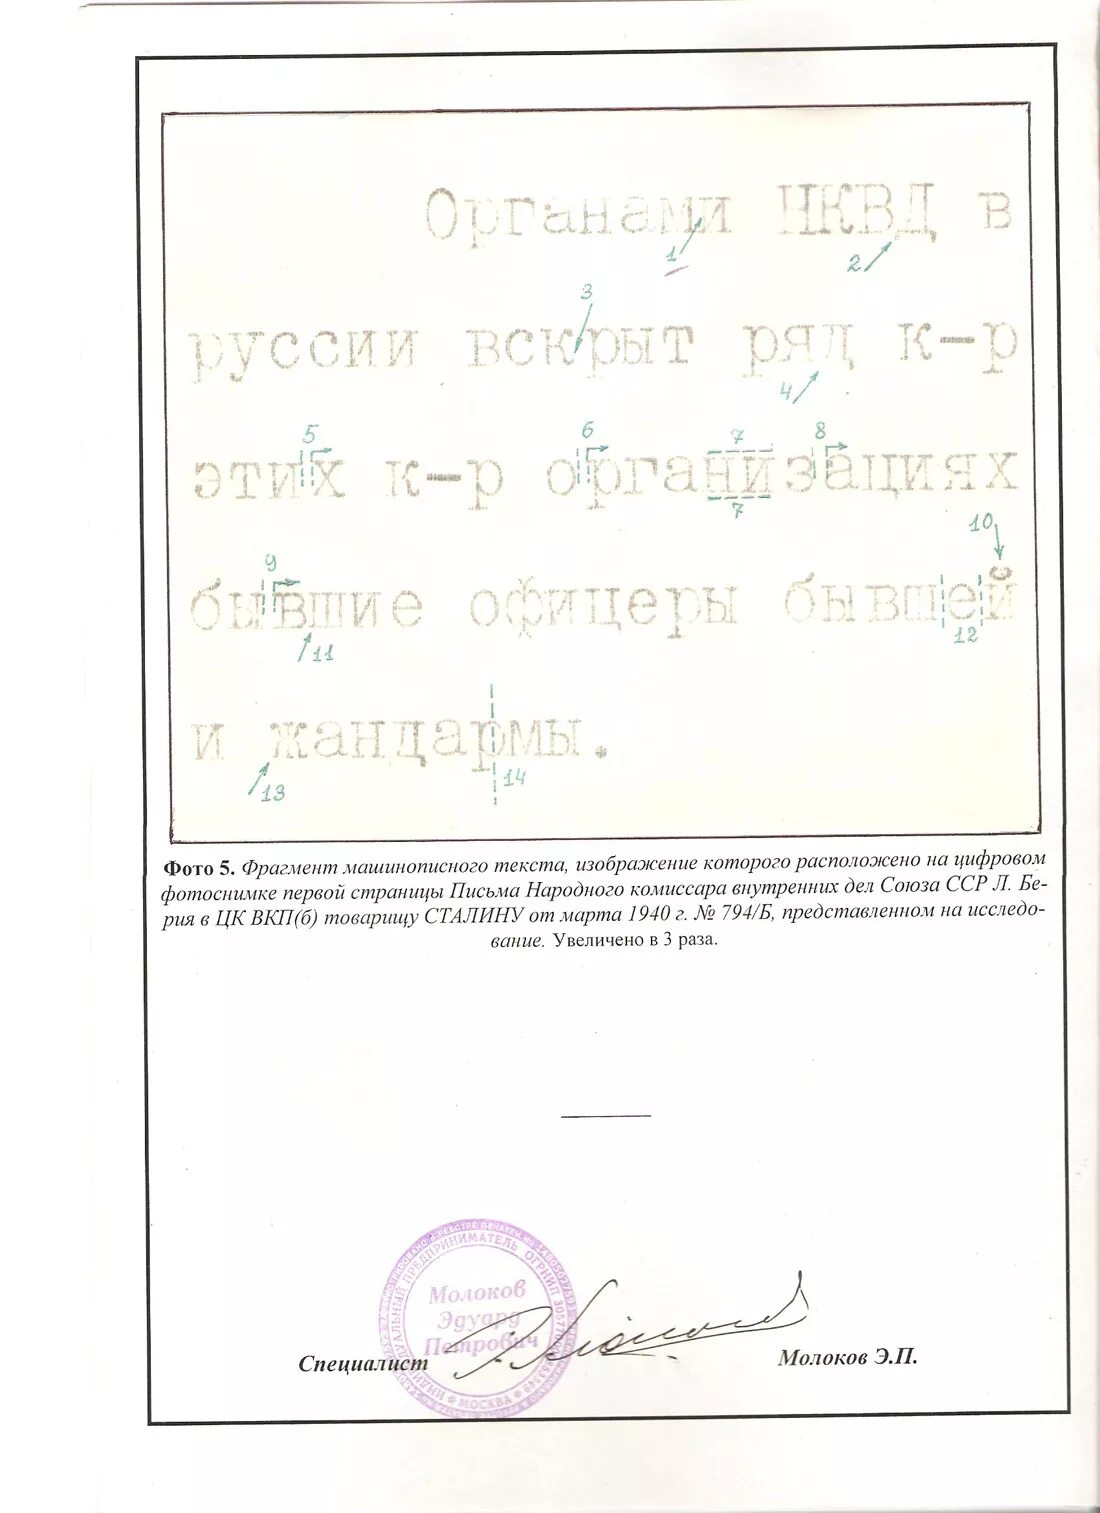 Органами НКВД в
1 2
3
руссии вскрыт ряд к-р
4
5 6 7 8
этих к-р организациях
7 10
9
бывшие офицеры бывшей
11 12
и жандармы.
13 14
Фото 5. Фрагмент машинописного текста, изображение которого расположено на цифровом
фотоснимке первой страницы Письма Народного комиссара внутренних дел Союза ССР Л. Бе-
рия в ЦК ВКП(б) товарищу СТАЛИНУ от марта 1940 г. № 794/Б, представленном на исследо-
вание. Увеличено в 3 раза.
ИНДИВИДУАЛЬНЫЙ ПРЕДПРИНИМАТЕЛЬ ОГРНИП
МОСКВА
Молоков
Эдуард
Петрович
Специалист Молоков Э.П.